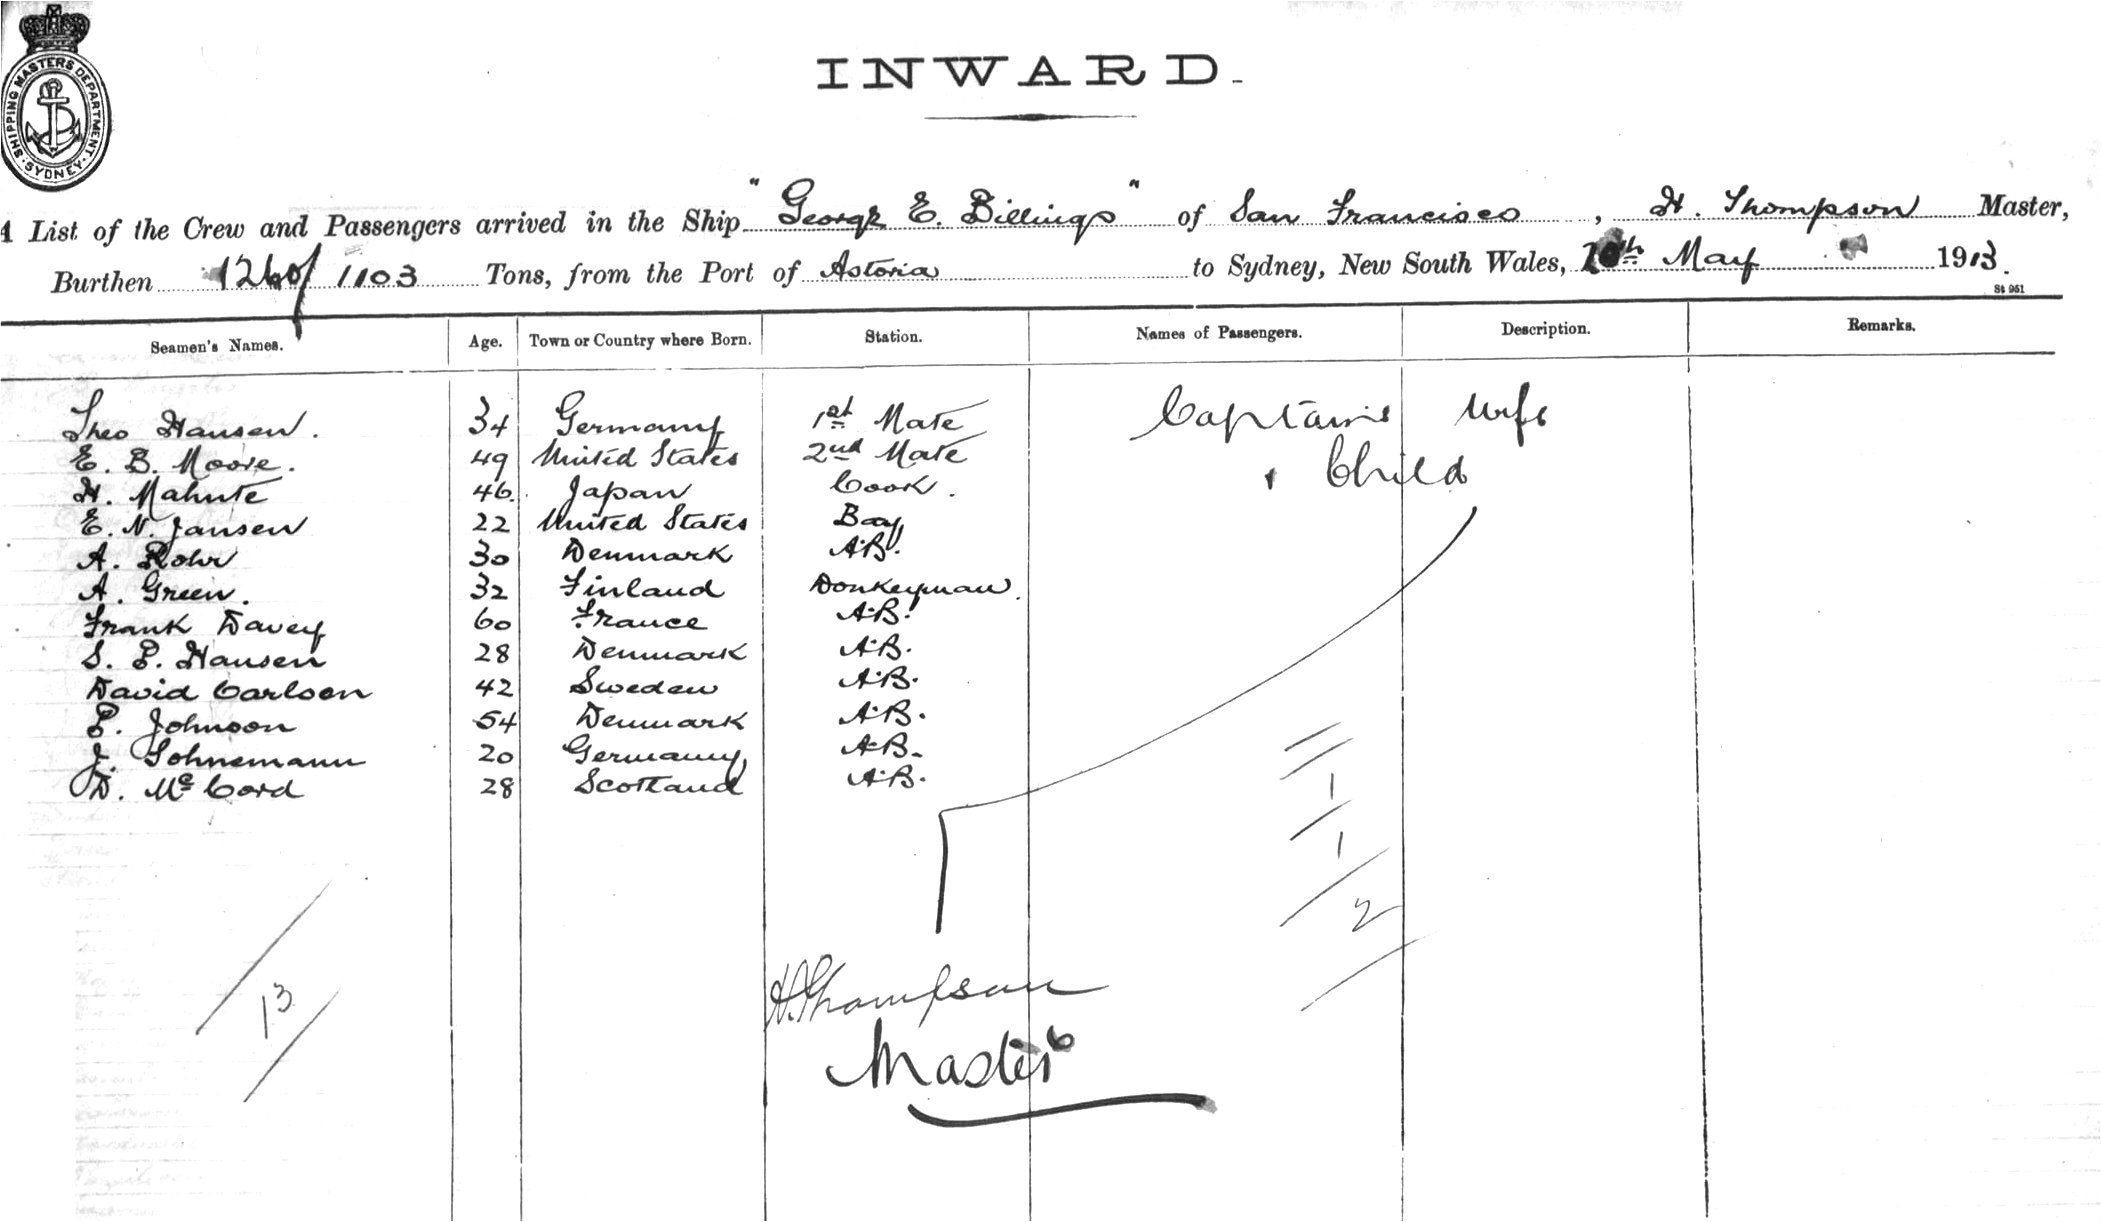 SHIPPING MASTERS DEPARTMENT. SYDNEY
INWARD.
A List of the Crew and Passengers arrived in the Ship "George E. Billings" of San Francisco, H. Thompson Master,
Burthen 1260/1103 Tons, from the Port of Astoria to Sydney, New South Wales, May 1913.
St 951
Seamen's Names. Age. Town or Country where Born. Station. Names of Passengers. Description. Remarks.
Theo Hansen. 34 Germany 1st Mate Captains wife
E. B. Moore. 49 United States 2nd Mate
& Child
H. Mahute 46. Japan Cook.
E. N. Jansen 22 United States Boy
A. Rohr 30 Denmark A.B.
A. Green. 32 Finland Donkeyman.
Frank Davey 60 France A.B.
S. P. Hansen 28 Denmark A.B.
David Carlsen 42 Sweden A.B.
P. Johnson 54 Denmark A.B.
J. Sohnemann 20 Germany A.B.
D. McCord 28 Scotland A.B.
1
1
2
13
H. Thompson
Master